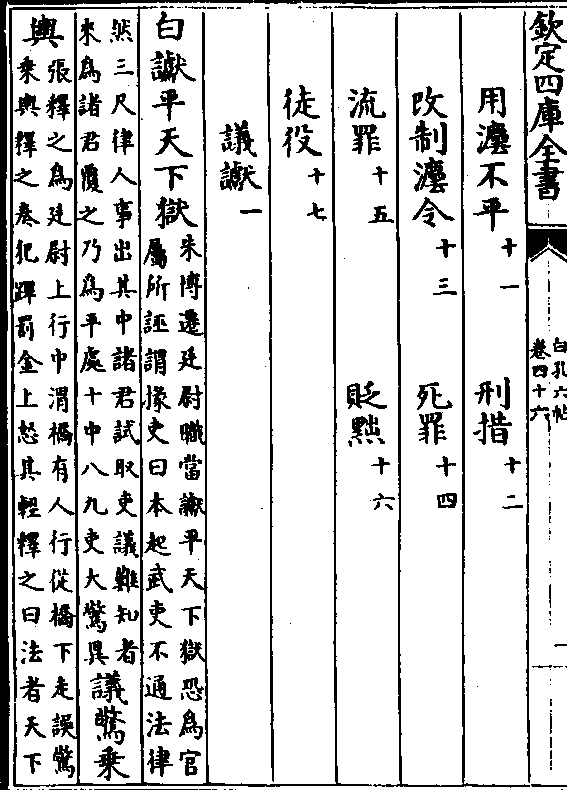 欽定四庫全書
白孔六帖
卷四十六
用灋不平十一 刑措十二
改制灋令十三 死罪十四
流罪十五 貶黜十六
徒役十七
議讞一
白讞平天下獄朱博遷廷尉職當讞平天下獄恐為官
屬所誣謂掾吏曰本起武吏不通法律
然三尺律人事出其中諸君試取吏議難知者
來為諸君覆之乃為平處十中八九吏大驚異議驚乗
輿張釋之為廷尉上行中渭橋有人行從橋下走誤驚
乗輿釋之奏犯蹕罰金上怒其輕釋之曰法者天下